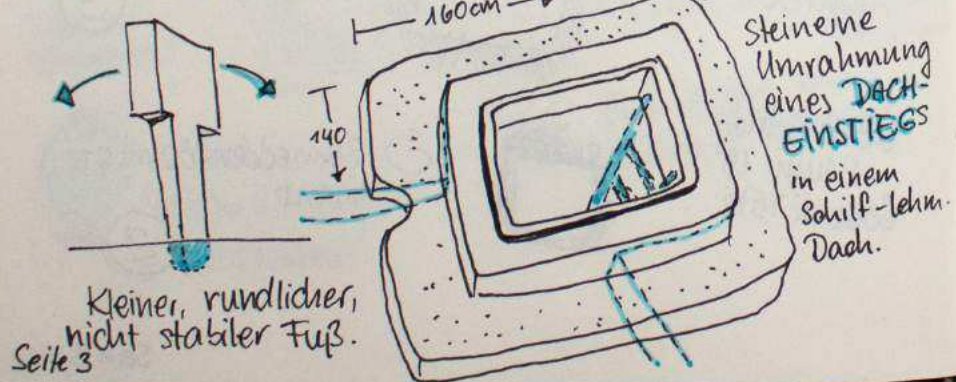 160cm
140
Steinerne
Umrahmung
eines DACH-
EINSTIEGS
in einem
Schilf-lehm.
Dach.
Kleiner, rundlicher,
nicht stabiler Fuß.
Seite 3